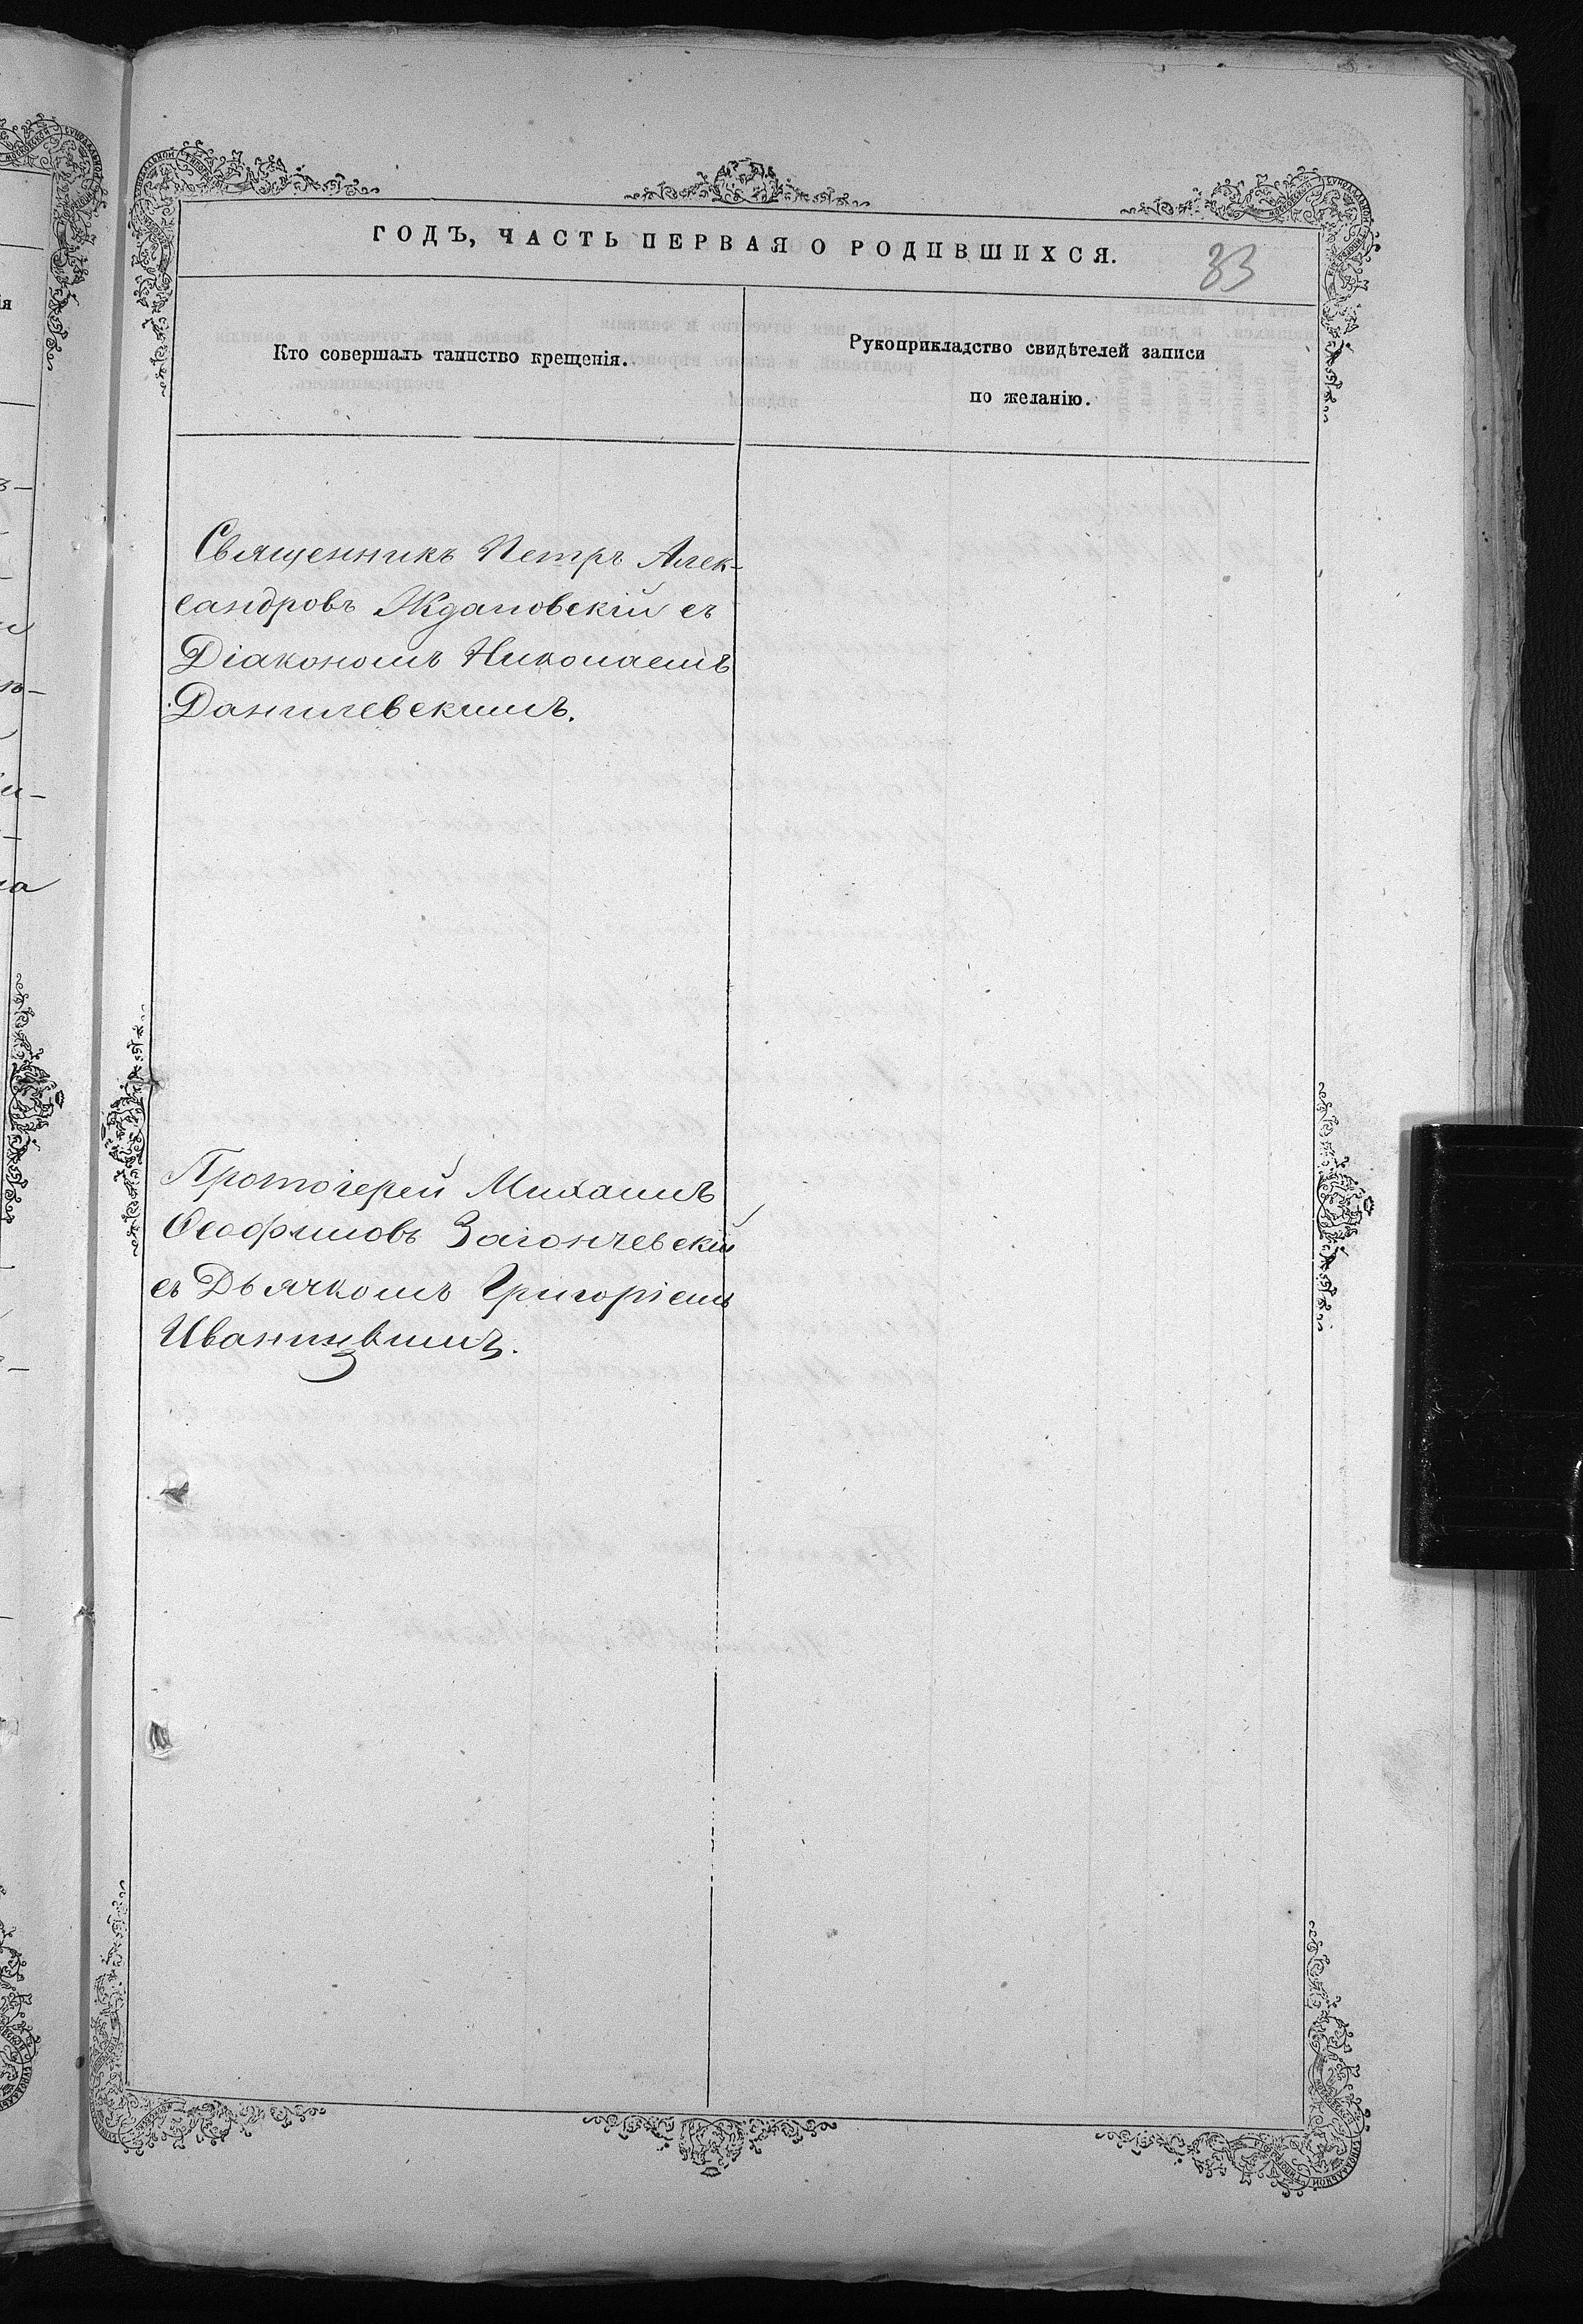 ГОДЪ, ЧАСТЬ ПЕРВАЯ О РОДИВШИХСЯ.
33
Кто совершалъ таинство крещенія.
Рукоприкладство свидѣтелей записи
по желанію.
Священникъ Петръ Алек-
сандровъ Ждановскій съ
Діакономъ Николаемъ
Данилевскимъ.
Протоіерей Михаилъ
Ѳеофиловъ Загончевскій
съ Дьячкомъ Григоріемъ